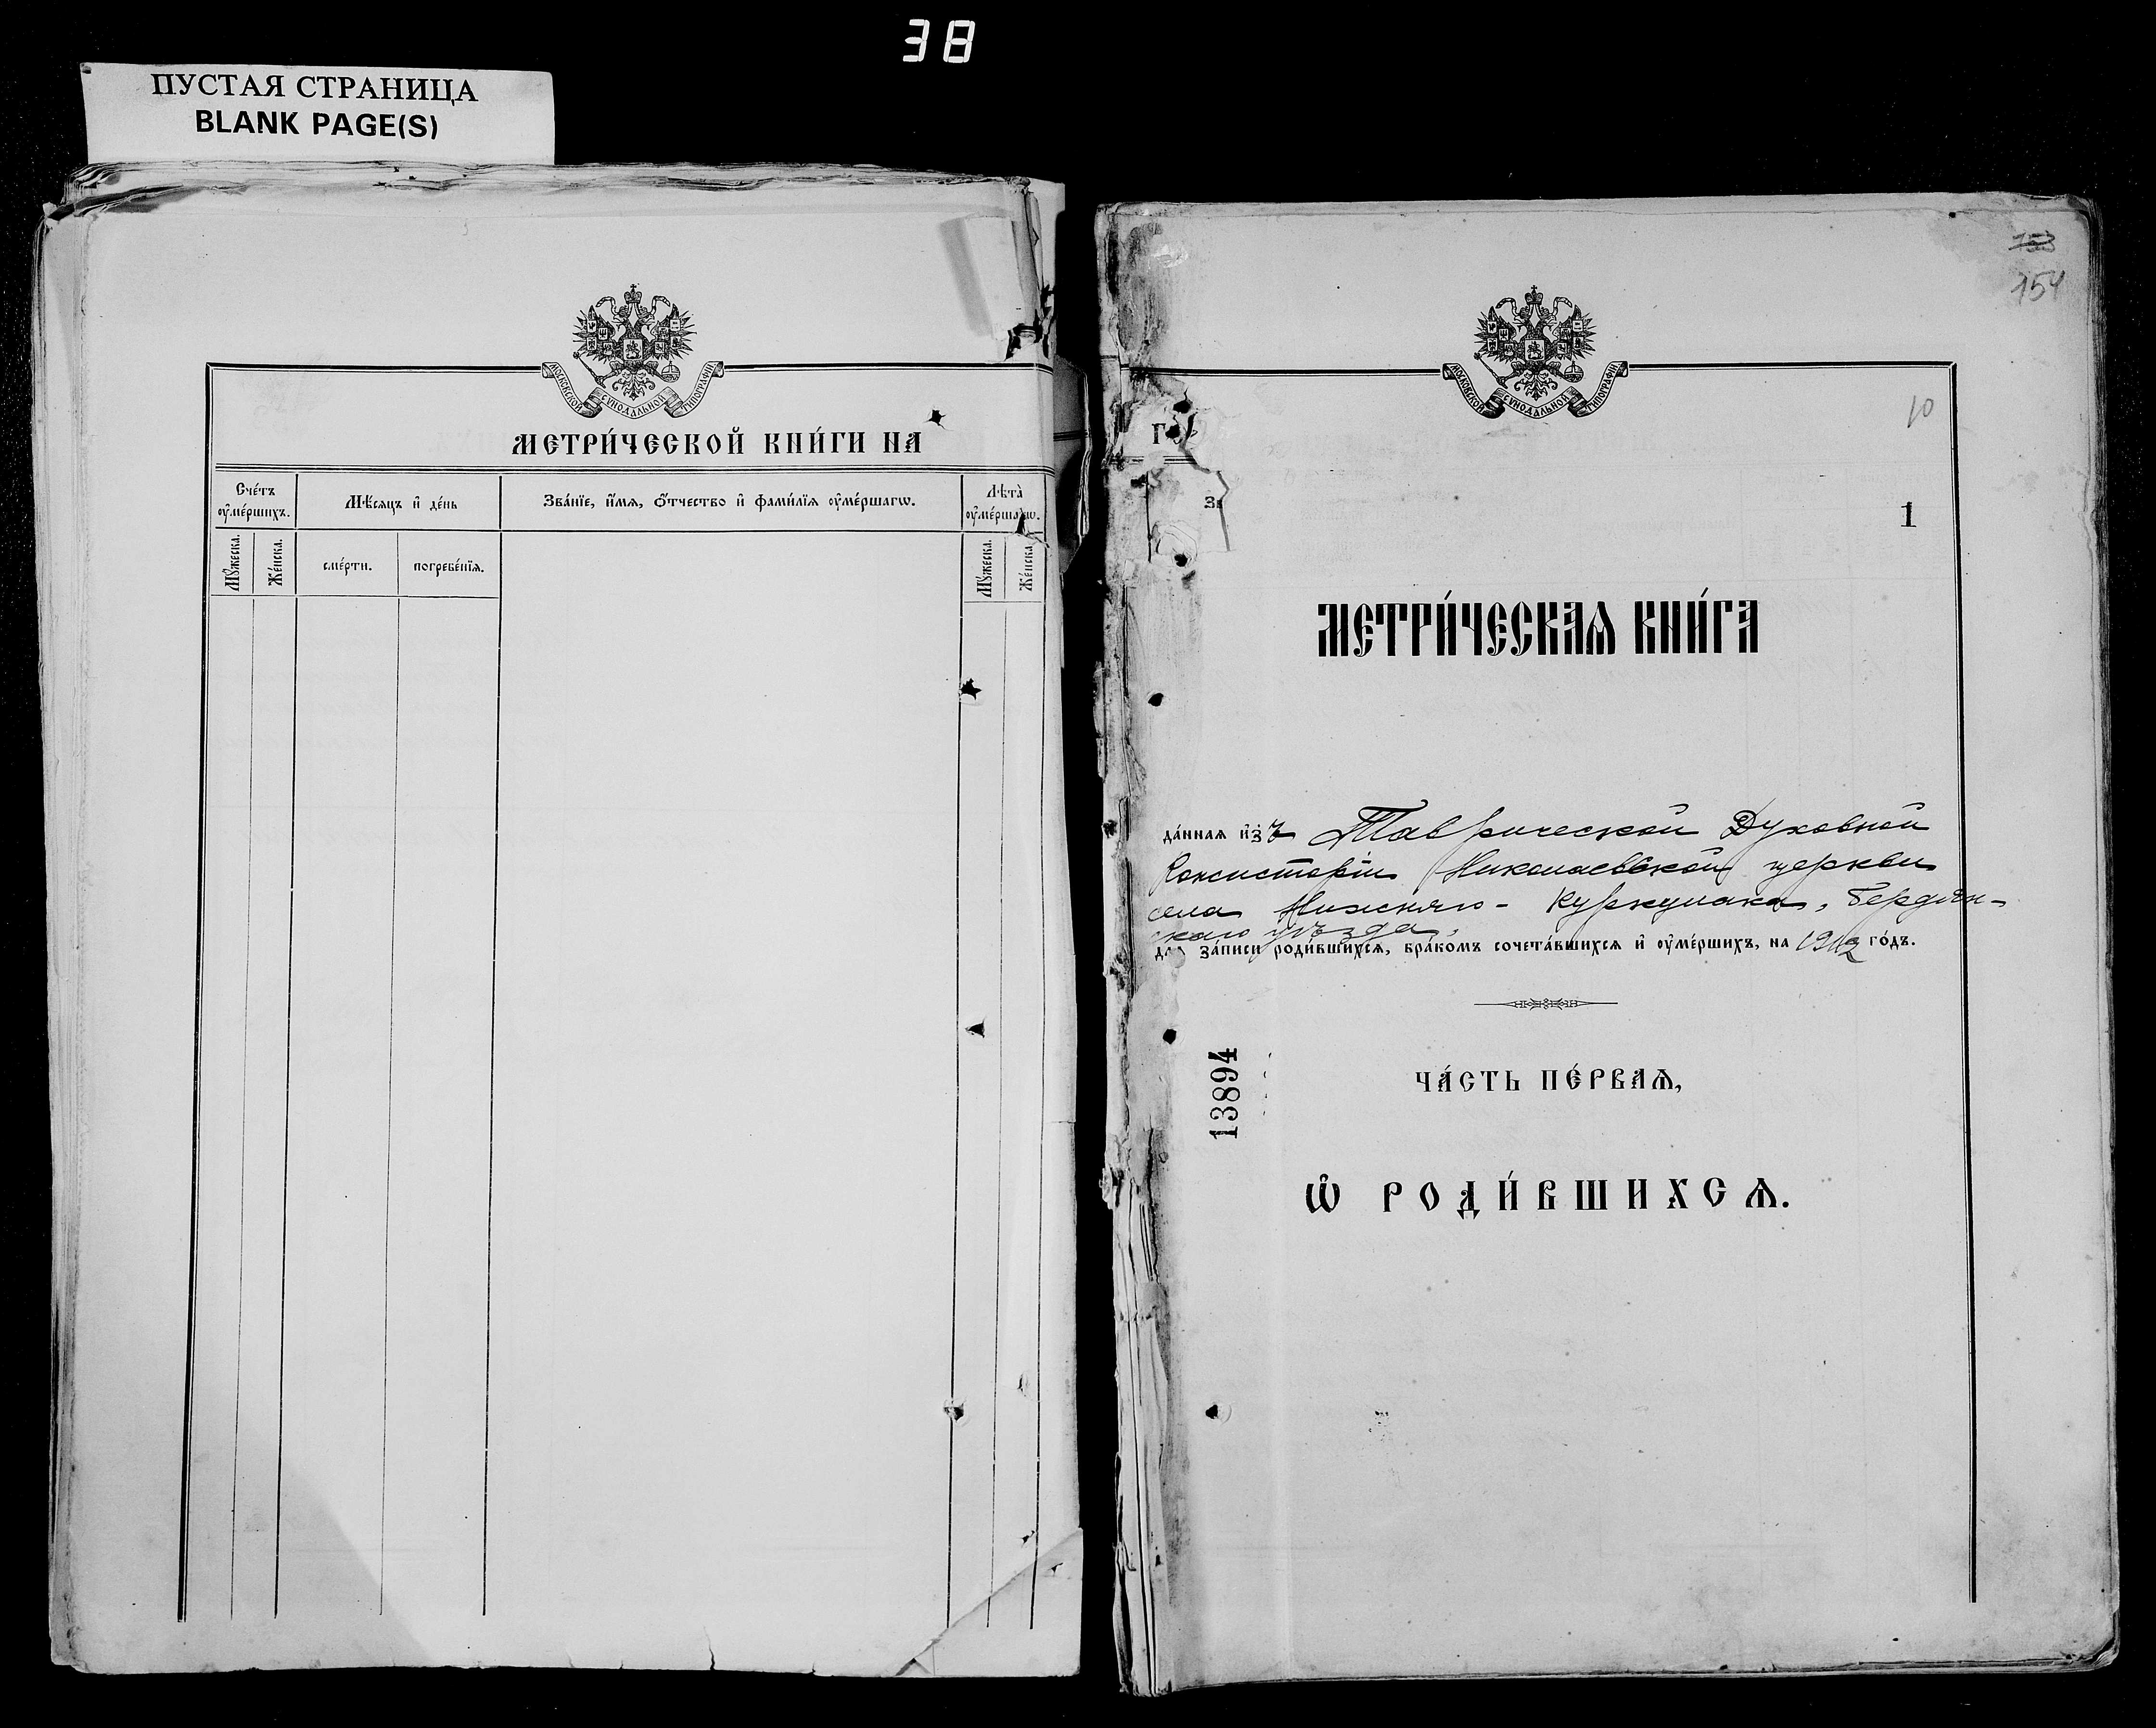 38
ПУСТАЯ СТРАНИЦА
BLANK PAGE(S)
МОСКОВСКОЙ СѴНОДАЛЬНОЙ ТИПОГРАФІИ
МЕТРИ́ЧЕСКОЙ КНИ́ГИ НА
Сче́тъ ᲂу҆ме́ршихъ.
Мѣ́сяцъ и҆ де́нь
Зва́нїе, и҆́мѧ, ѻ҆́тчество и҆ фами́лїѧ ᲂу҆ме́ршагѡ.
Лѣ́та ᲂу҆ме́ршагѡ.
Мꙋ́жеска.
Же́нска.
сме́рти.
погребе́нїѧ.
Мꙋ́жеска.
Же́нска.
153
154
МОСКОВСКОЙ СѴНОДАЛЬНОЙ ТИПОГРАФІИ
10
1
МЕТРИ́ЧЕСКАѦ КНИ́ГА
да́ннаѧ и҆зъ Таврической Духовной
Консисторіи Николаевской церкви
села Нижняго-Куркулака, Бердян-
скаго уѣзда,
для за́писи роди́вшихсѧ, бра́комъ сочета́вшихсѧ и҆ ᲂу҆ме́ршихъ, на 1912 го́дъ.
13894
ЧА́СТЬ ПЕ́РВАѦ,
Ѡ҆ РОДИ́ВШИХСѦ.